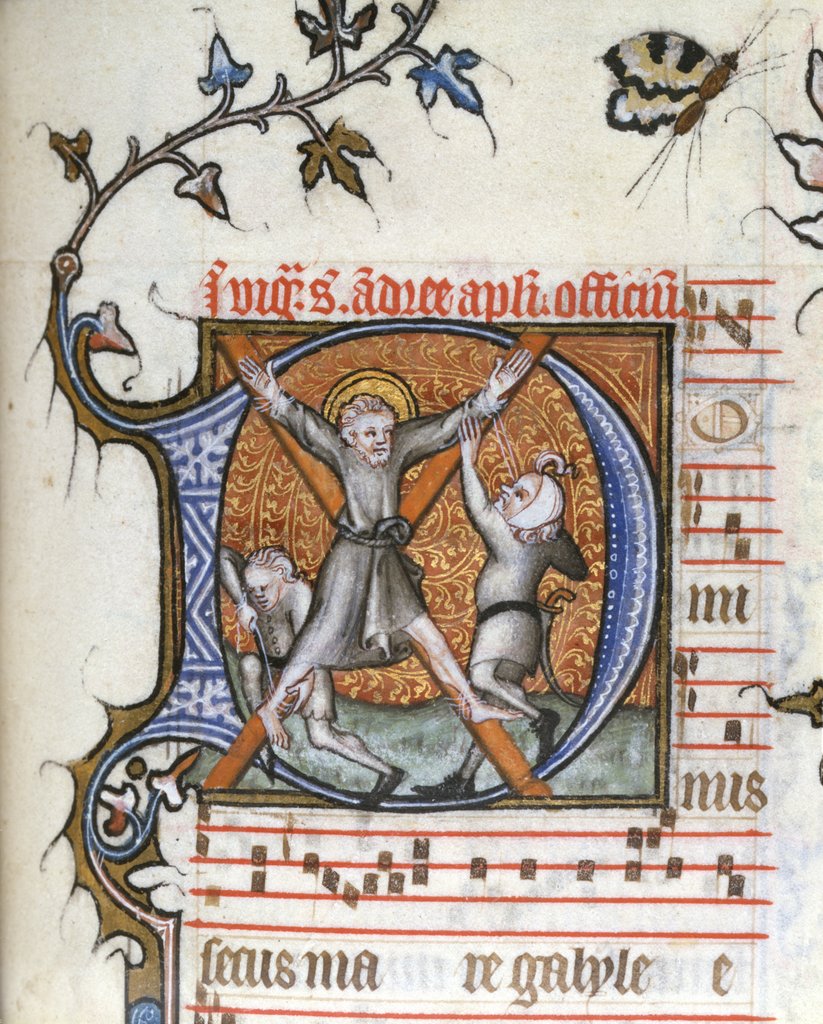 In vigi. s. adree apli. officiu.
DO
mi
nus
secus ma re galyle e